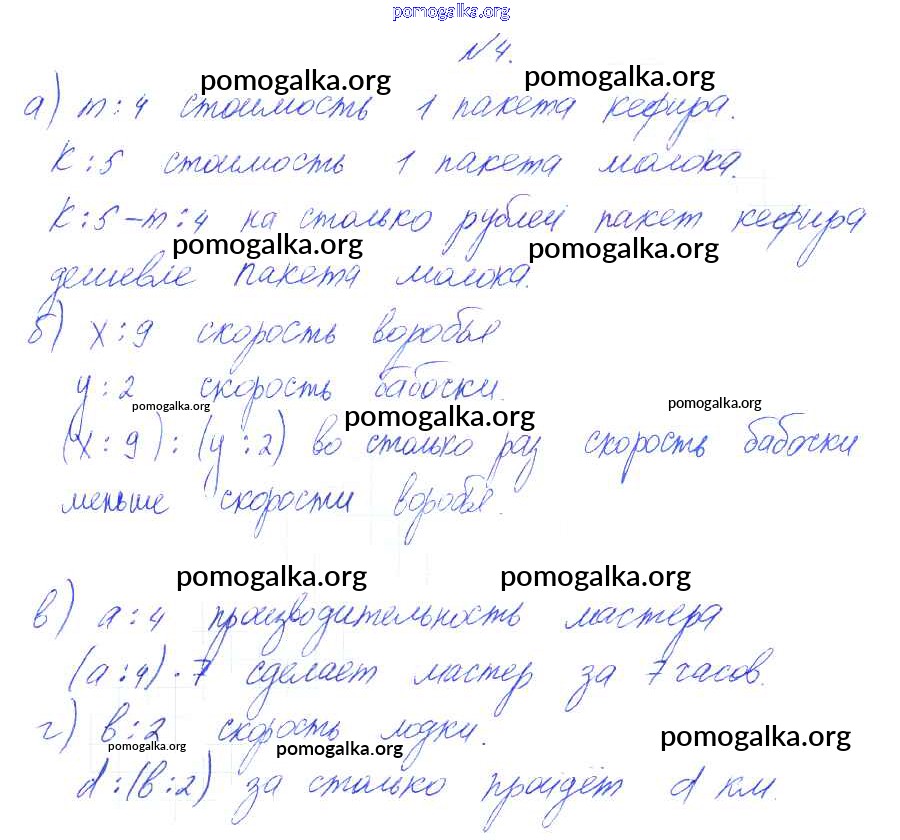 pomogalka.org
№4.
pomogalka.org pomogalka.org
а) m:4 стоимость 1 пакета кефира.
К:5 стоимость 1 пакета молока.
К:5-m:4 на столько рублей пакет кефира
pomogalka.org pomogalka.org
дешевле пакета молока.
б) х:9 скорость воробья
у:2 скорость бабочки.
pomogalka.org pomogalka.org pomogalka.org
(х:9):(у:2) во столько раз скорость бабочки
меньше скорости воробья.
pomogalka.org pomogalka.org
в) а:4 производительность мастера
(а:4)·7 сделает мастер за 7 часов.
г) в:2 скорость лодки.
pomogalka.org pomogalka.org pomogalka.org
d:(в:2) за столько пройдёт d км.